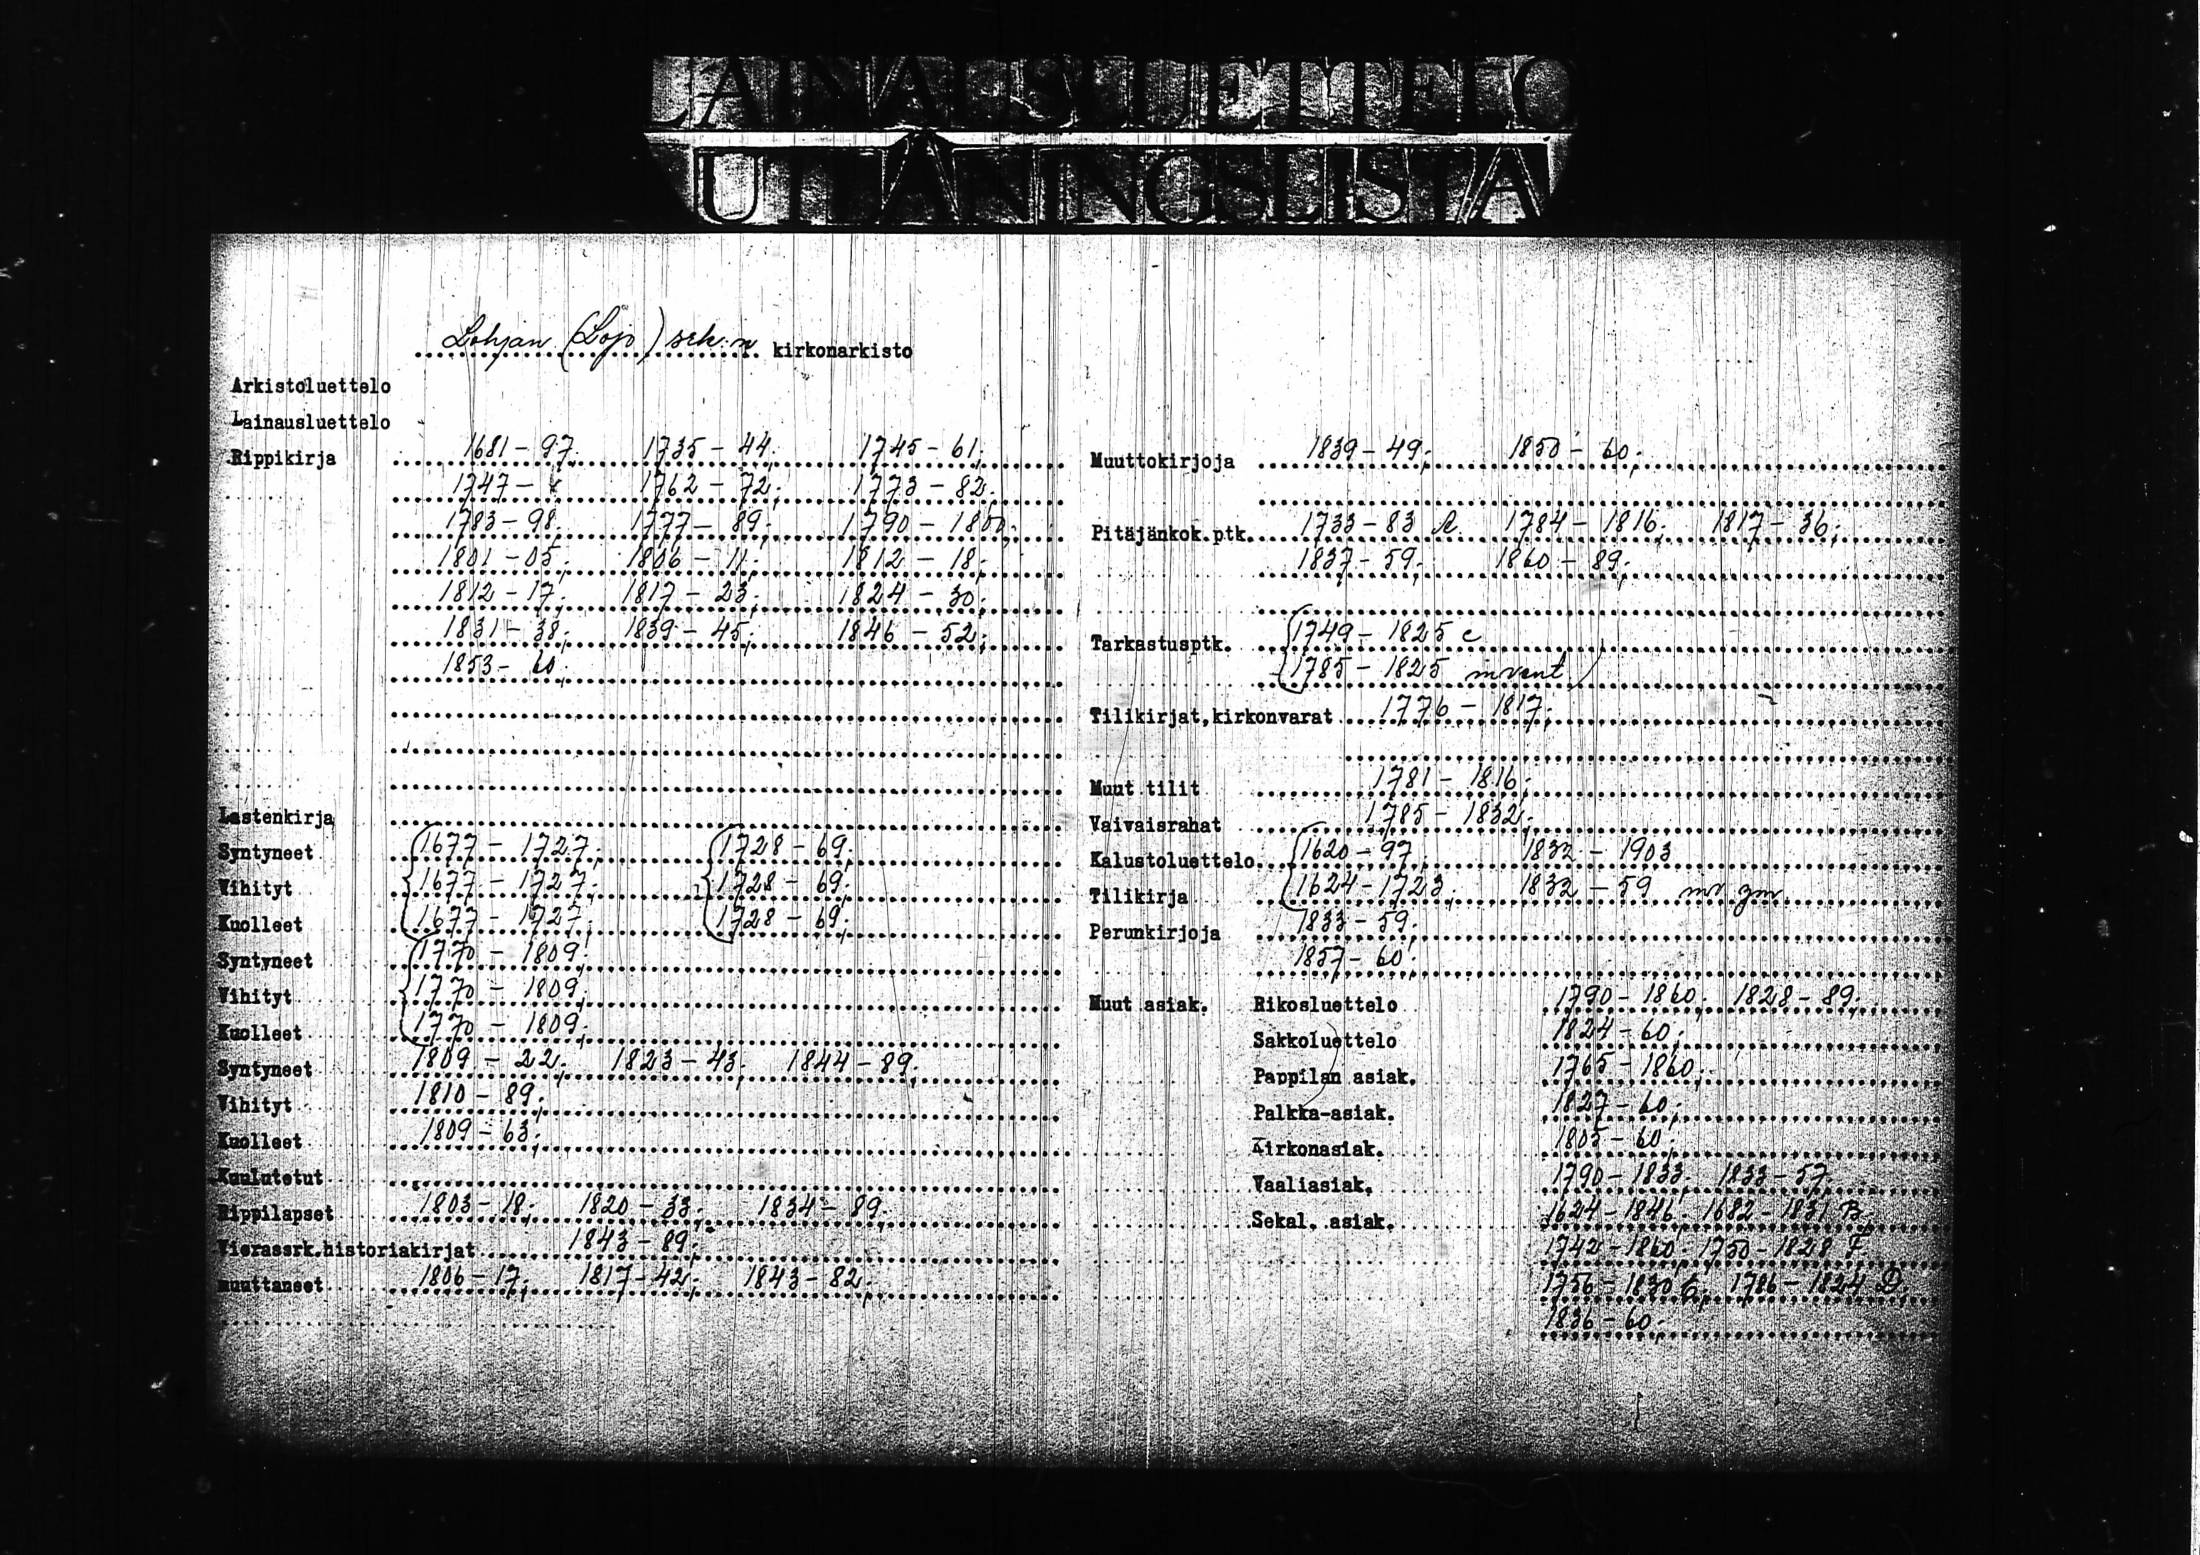 LAINAUSLUETTELO
UTLÅNINGSLISTA
Lohjan (Lojo) srk:n kirkonarkisto
Arkistoluettelo
Lainausluettelo
Rippikirja 1681-97; 1735-44; 1745-61;
1747- 1762-72; 1773-82;
1783-98; 1777-89; 1790-1800;
1801-05; 1806-11; 1812-18;
1812-17; 1817-23; 1824-30;
1831-38; 1839-45; 1846-52;
1853-60;
Lastenkirja
Syntyneet 1677-1727; 1728-69;
Vihityt 1677-1727; 1728-69;
Kuolleet 1677-1727; 1728-69;
Syntyneet 1770-1809;
Vihityt 1770-1809;
Kuolleet 1770-1809;
Syntyneet 1809-22; 1823-43; 1844-89;
Vihityt 1810-89;
Kuolleet 1809-63;
Kuulutetut
Rippilapset 1803-18; 1820-33; 1834-89;
Vierassrk.historiakirjat 1843-89;
muuttaneet 1806-17; 1817-42; 1843-82;
Muuttokirjoja 1839-49; 1850-60;
Pitäjänkok.ptk. 1733-83 A. 1784-1816; 1817-36;
1837-59; 1860-89;
Tarkastusptk. 1749-1825 c
1785-1825 invent)
Tilikirjat,kirkonvarat 1776-1817;
Muut tilit 1781-1816;
Vaivaisrahat 1785-1832;
Kalustoluettelo 1620-97; 1832-1903
Tilikirja 1624-1723; 1832-59
Perunkirjoja 1833-59;
1857-60;
Muut asiak. Rikosluettelo 1790-1860; 1828-89;
Sakkoluettelo 1824-60;
Pappilan asiak. 1765-1860;
Palkka-asiak. 1827-60;
Kirkonasiak. 1805-60;
Vaaliasiak. 1790-1833; 1833-57
Sekal. asiak. 1624-1846; 1682-1831 B.
1742-1860; 1750-1828 F.
1756-1830 C; 1786-1824 D.
1836-60;